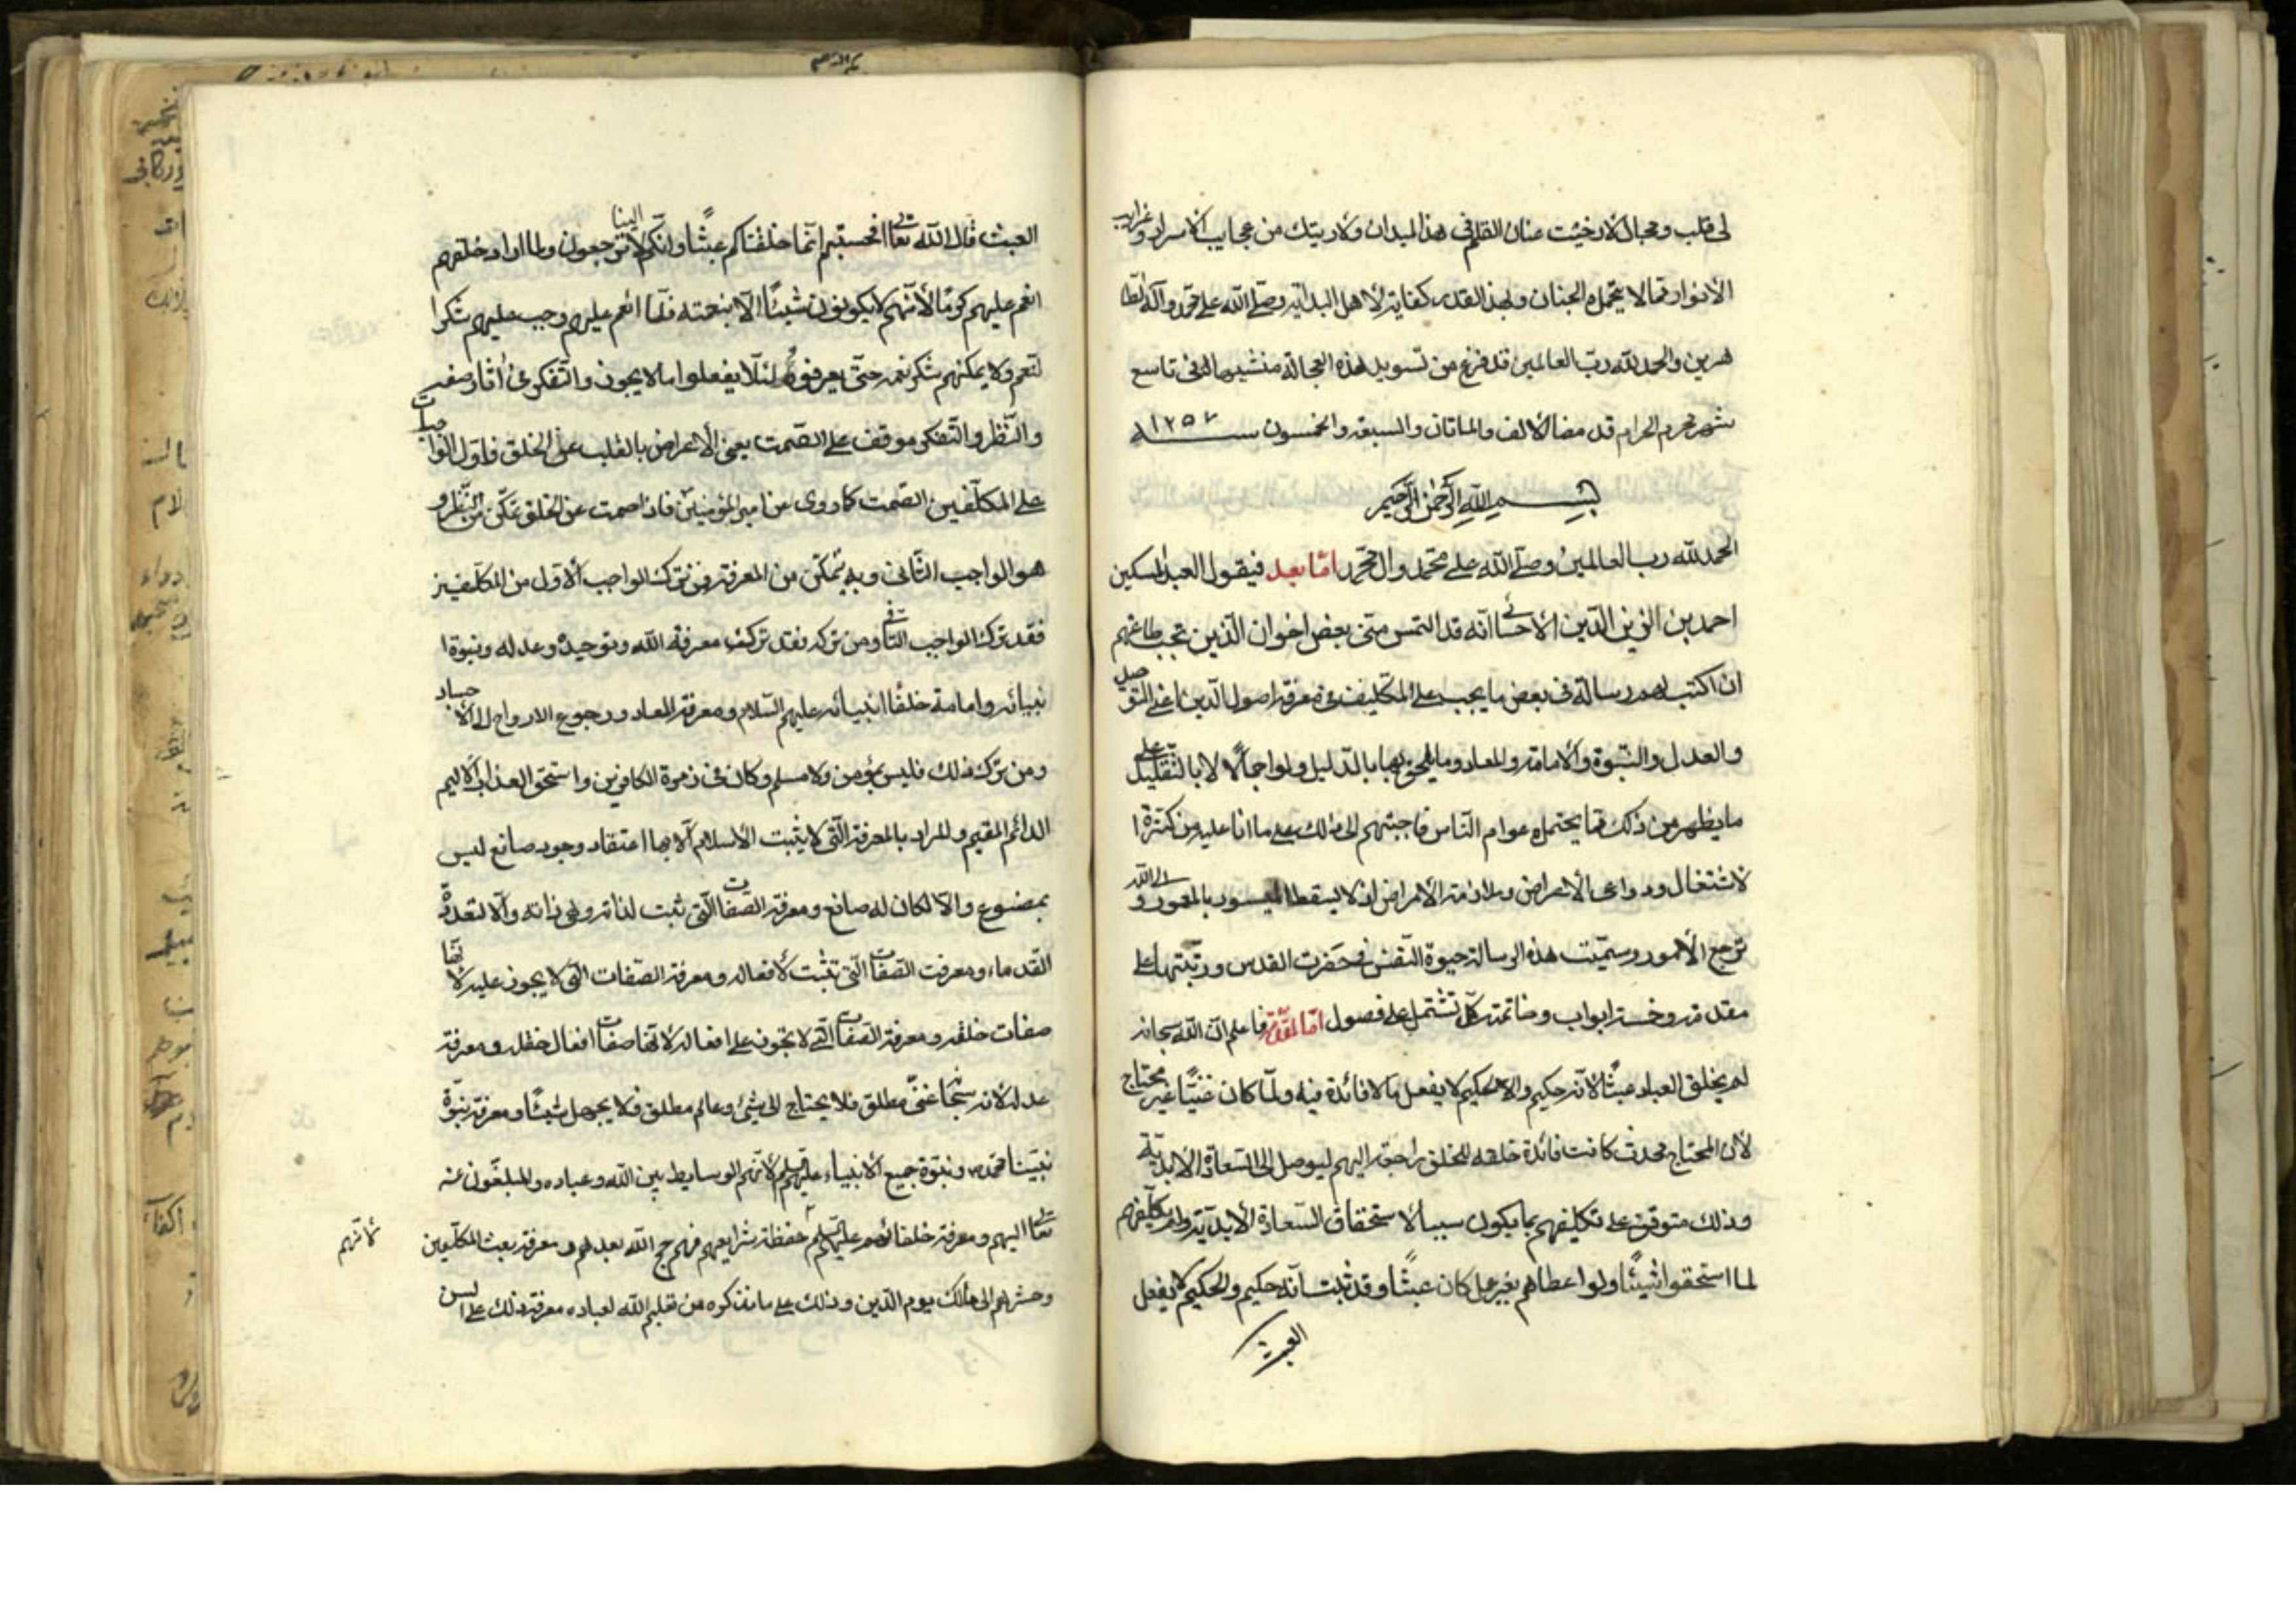 لى قلب ومجال لارخيت عنان القلم فى هذا الميدان ولاريتك من عجايب الاسرار وغرايب
الانوار مما لا يحتمله الجنان ولهذا القدر كفاية لاهل البداية وصلى الله على محمد وآله الطا
هرين والحمد لله رب العالمين قد فرغ من تسويد هذه العجالة منشيها فى تاسع
شهر محرم الحرام قد مضا الالف والماتان والسبعة والخمسون سنه ١٢٥٧
بسم الله الرحمن الرحيم
الحمد لله رب العالمين وصلى الله على محمد وال محمد اما بعد فيقول العبد المسكين
احمد بن الزين الدين الاحسائى انه قد التمس منى بعض اخوان الذين تجب طاعتهم
ان اكتب لهم رسالة فى بعض ما يجب على المكليفن فى معرفة اصول الدين اعنى التوحيد
والعدل والنبوة والامامة والمعاد وما يلحق بها بالدليل ولو اجمالا لا بالتقليد على
ما يظهر من ذلك مما يحتمله عوام الناس فاجبتهم الى ذلك على ما انا عليه من كثرة ا
لاشتغال ودواعى الاعراض وملازمة الامراض اذ لا يسقط الميسور بالمعسور والى الله
ترجع الامور وسميت هذه الرسالة حيوة النفس فى حضرت القدس ورتبتها على
مقدمة وخمسة ابواب وخاتمة كل تشتمل على فصول اما المقدمة فاعلم ان الله سبحانه
لم يخلق العباد عبثًا لانه حكيم والحكيم لا يفعل ما لا فائدة فيه ولما كان غنيًا غير محتاج
لان المحتاج محدث كانت فائدة خلقه للخلق راجعة اليهم ليوصل الى السعادة الابدية
وذلك متوقف على تكليفهم بما يكون سببا لاستحقاق السعادة الابدية ولو لم يكلفهم
لما استحقوا شيئًا ولو اعطاهم بغير عمل كان عبثًا وقد ثبت انه حكيم والحكيم لا يفعل
العبث
العبث قال الله تعالى افحسبتم انما خلقناكم عبثًا وانكم الينا لا ترجعون ولما اراد خلقهم
انعم عليهم كرمًا لانهم لا يكونون شيئًا الا بنعمته فلما انعم عليهم وجب عليهم شكرا
لنعم ولا يمكنهم شكر نعمه حتى يعرفوه لئلا يفعلوا ما لا يجوز والتفكر فى اثار صنعه
والنظر والتفكر موقف على الصمت يعنى الاعراض بالقلب عن الخلق فاول الواجبات
على المكلفين الصمت كما روى عن امير المؤمنين فاذا صمت عن الخلق تمكن من النظر و
هو الواجب الثانى وبه يتمكن من المعرفة فمن ترك الواجب الاول من المكلفين
فقد ترك الواجب الثانى ومن تركه فقد ترك معرفة الله وتوحيده وعدله ونبوة ا
نبيائه وامامة خلفا انبيائه عليهم السلام ومعرفة المعاد ورجوع الارواح الى الاجساد
ومن ترك ذلك فليس بمؤمن ولا مسلم وكان فى زمرة الكافرين واستحق العذاب الاليم
الدائم المقيم والمراد بالمعرفة التى لا يثبت الاسلام الا بها اعتقاد وجود صانع ليس
بمصنوع والا لكان له صانع ومعرفة الصفات التى ثبت لذاته وهى ذاته والا لتعدد
القدماء ومعرفت الصفات التى تثبت لافعاله ومعرفة الصفات التى لا يجوز عليه لانها
صفات خلقه ومعرفة الصفات التى لا تجوز على افعاله لانها صفات افعال خلقه ومعرفة
عدله لانه سبحانه غنى مطلق فلا يحتاج الى شئ وعالم مطلق فلا يجهل شيئًا ومعرفة نبوة
نبينا محمد ص ونبوة جميع الانبياء عليهم السلم لانهم الوسايط بين الله وعباده والمبلغون عنه
تعالى اليهم ومعرفة خلفائهم عليهم السلم حفظة شرايعهم فهم حجج الله بعدهم ومعرفة بعث المكلفين
لانهم
وحشرهم الى مالك يوم الدين وذلك على ما نذكره من تعليم الله لعباده معرفة ذلك على السن